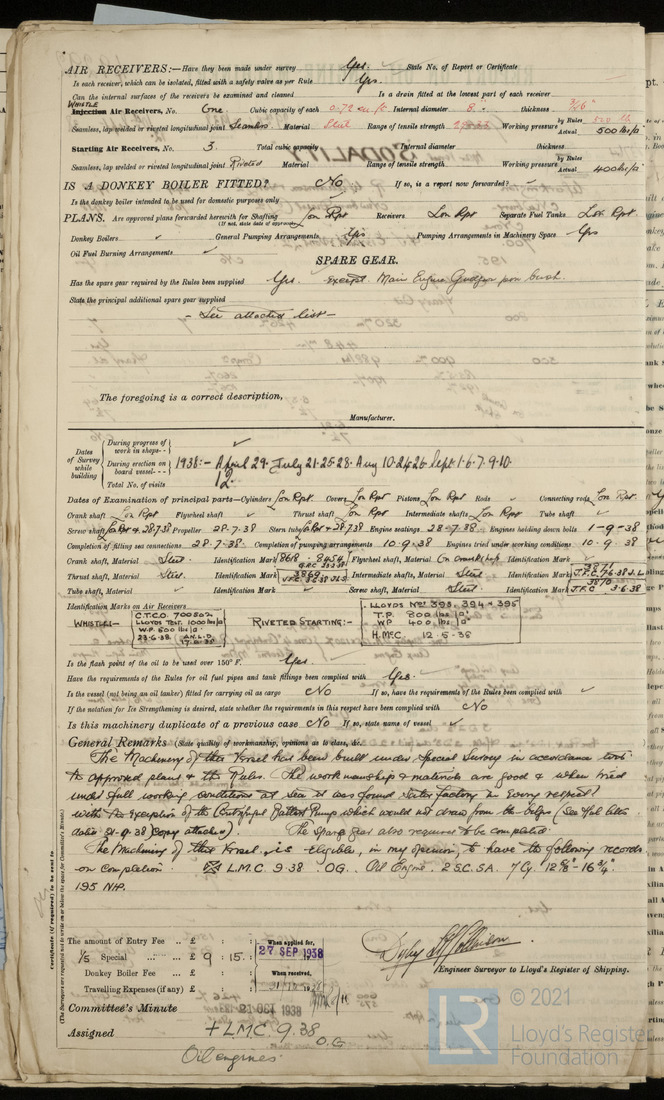 AIR RECEIVERS:—Have they been made under survey Yes. State No. of Report or Certificate
Is each receiver, which can be isolated, fitted with a safety valve as per Rule Yes.
Can the internal surfaces of the receivers be examined and cleaned Is a drain fitted at the lowest part of each receiver
WHISTLE
Injection Air Receivers, No. One. Cubic capacity of each 0.72 Internal diameter 8 thickness
Seamless, lap welded or riveted longitudinal joint Seamless Material Steel Range of tensile strength Working pressure by Rules
Actual 500 lbs/□"
Starting Air Receivers, No. 3. Total cubic capacity Internal diameter thickness
Seamless, lap welded or riveted longitudinal joint Riveted Material Range of tensile strength Working pressure by Rules
Actual 400 lbs/□"
IS A DONKEY BOILER FITTED? No If so, is a report now forwarded?
Is the donkey boiler intended to be used for domestic purposes only
PLANS. Are approved plans forwarded herewith for Shafting Lon Rpt Receivers Lon Rpt. Separate Fuel Tanks Lon Rpt.
(If not, state date of approval)
Donkey Boilers General Pumping Arrangements Yes Pumping Arrangements in Machinery Space Yes
Oil Fuel Burning Arrangements
SPARE GEAR.
Has the spare gear required by the Rules been supplied Yes. except Main Engine Gudgeon pin bush.
State the principal additional spare gear supplied
- See attached list -
The foregoing is a correct description,
Manufacturer.
Dates of Survey while building
During progress of work in shops - -
During erection on board vessel - - -
Total No. of visits
1938:- April 29. July 21.25.28. Aug 10.24.26. Sept. 1.6.7.9.10.
12.
Dates of Examination of principal parts—Cylinders Lon Rpt. Covers Lon Rpt Pistons Lon Rpt. Rods Connecting rods Lon Rpt.
Crank shaft Lon Rpt Flywheel shaft Thrust shaft Lon Rpt Intermediate shafts Lon Rpt Tube shaft
Screw shaft Lon Rpt & 28.7.38 Propeller 28.7.38 Stern tube Lon Rpt & 28.7.38 Engine seatings 28.7.38. Engines holding down bolts 1-9-38
Completion of fitting sea connections 28.7.38. Completion of pumping arrangements 10.9.38 Engines tried under working conditions 10.9.38
Crank shaft, Material Steel. Identification Mark Flywheel shaft, Material On crankshaft Identification Mark
Thrust shaft, Material Steel. Identification Mark Intermediate shafts, Material Steel Identification Marks
Tube shaft, Material Identification Mark Screw shaft, Material Steel Identification Mark 3.6.38
Identification Marks on Air Receivers
WHISTLE—
C.T.C.O. 700502
LLOYDS TEST. 1000 lbs/□
W.P. 500 lbs/□
23.6.38
RIVETED STARTING:-
LLOYDS Nos 393, 394 & 395
T.P. 800 lbs/□"
WP 400 lbs/□"
H.M.C. 12.5.38
Is the flash point of the oil to be used over 150° F. Yes.
Have the requirements of the Rules for oil fuel pipes and tank fittings been complied with Yes.
Is the vessel (not being an oil tanker) fitted for carrying oil as cargo No If so, have the requirements of the Rules been complied with
If the notation for Ice Strengthening is desired, state whether the requirements in this respect have been complied with No
Is this machinery duplicate of a previous case No If so, state name of vessel
General Remarks (State quality of workmanship, opinions as to class, &c.
The Machinery of this Vessel has been built under Special Survey in accordance with
the approved plans & the Rules. The workmanship & materials are good & when tried
under full working conditions at sea it was found satisfactory in every respect
with the exception of the Centrifugal Ballast Pump which would not draw from the bilges (see
dated 21-9-38) (copy attached). The spare gear also requires to be completed.
The Machinery of this Vessel is eligible, in my opinion, to have the following records
on completion. L.M.C 9.38 O.G. Oil Engine. 2 S.C.SA. 7 Cy.
195 NHP.
Certificate (if required) to be sent to
(The Surveyors are requested not to write on or below the space for Committee's Minute.)
The amount of Entry Fee .. £ : :
1/5 Special .. .. £ 9 : 15 :
Donkey Boiler Fee .. £ : :
Travelling Expenses (if any) £ : :
When applied for,
27 SEP 1938
When received,
Engineer Surveyor to Lloyd's Register of Shipping.
Committee's Minute 21 OCT 1938
Assigned + L.M.C. 9.38
O.G
Oil engines
LR
© 2021
Lloyd's Register
Foundation